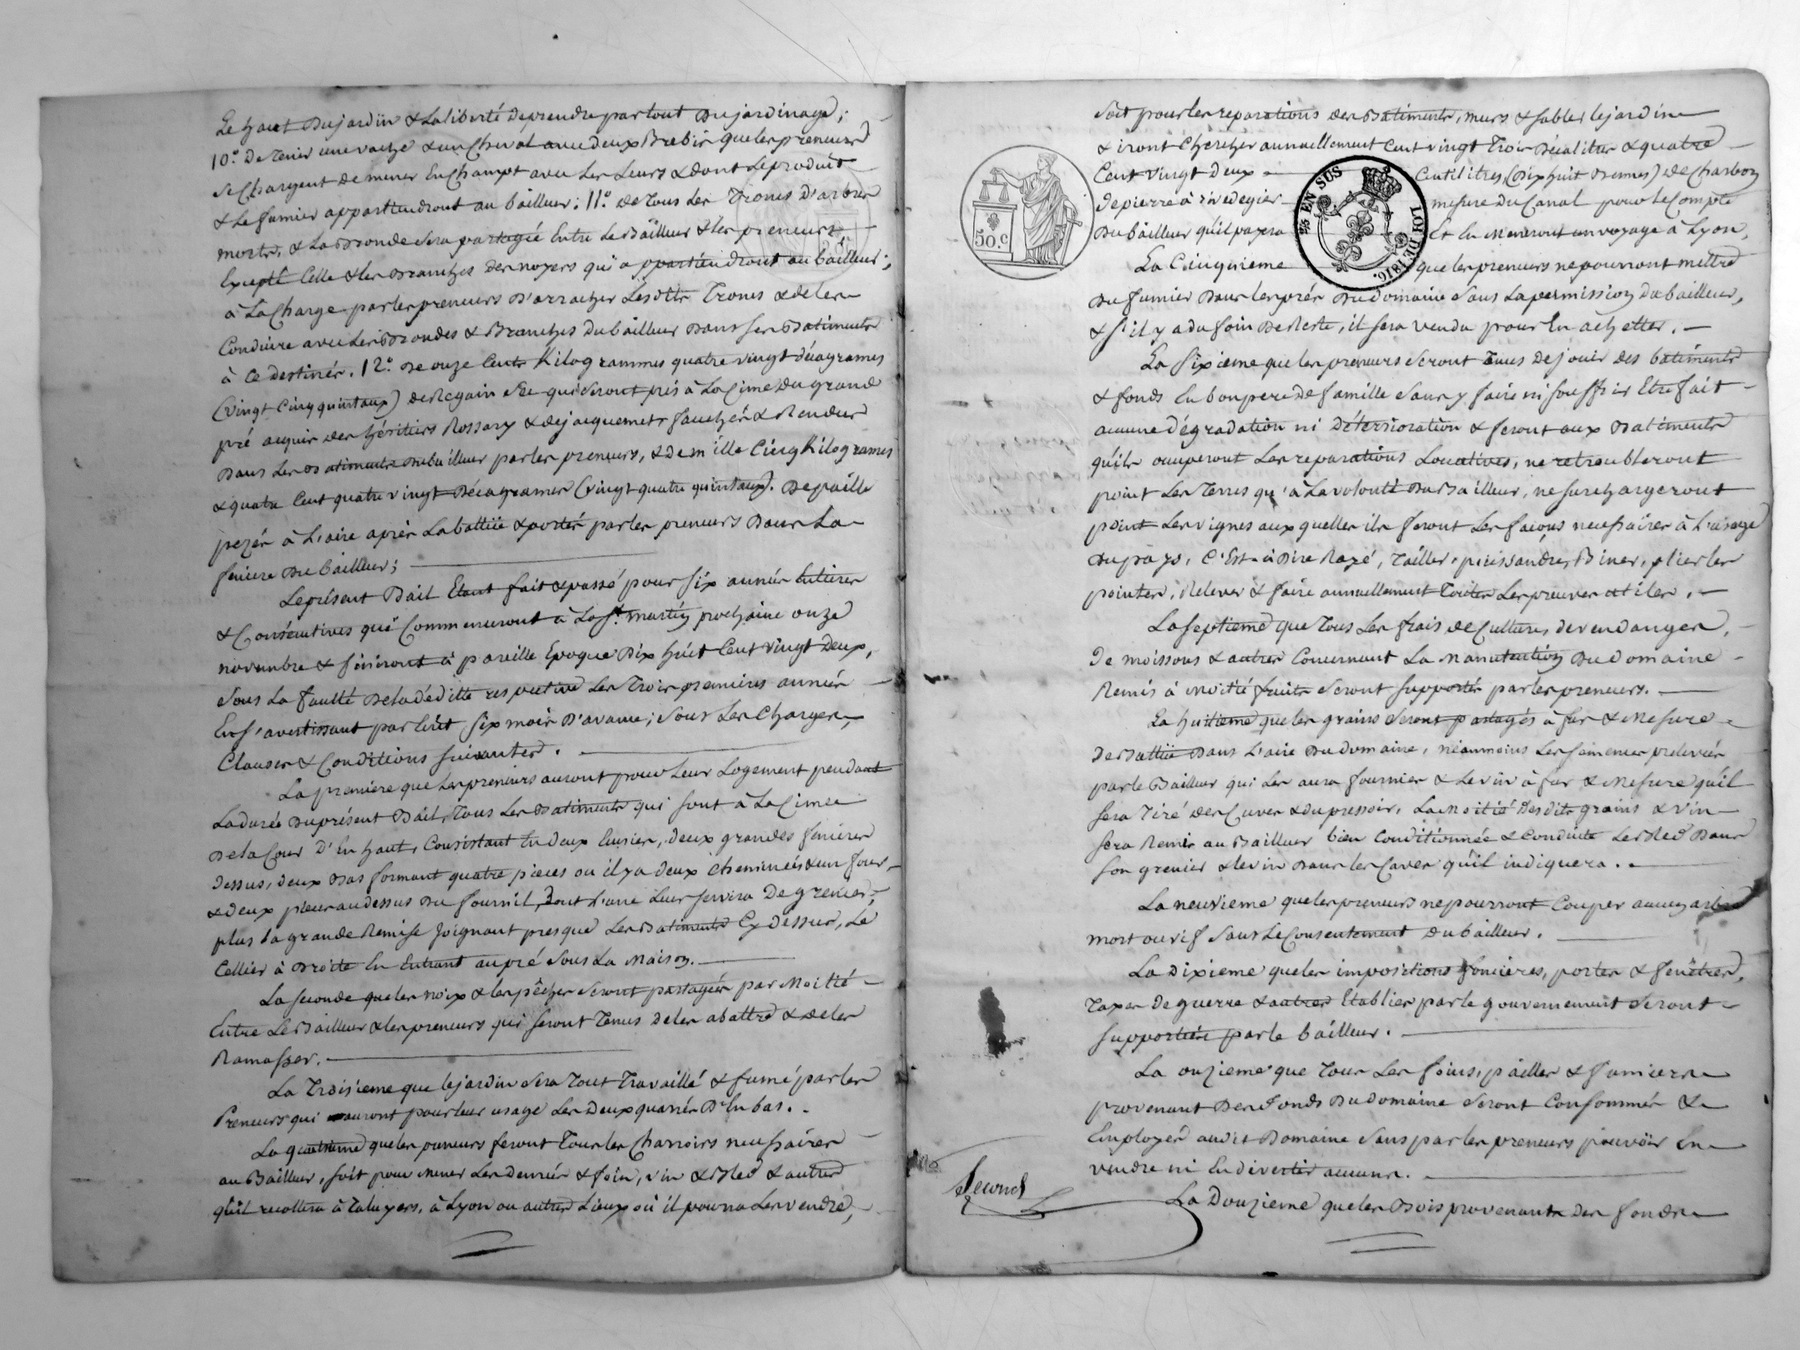 Le haut du jardin & la liberté de prendre partout du jardinage;
10.° de tenir une vache & un cheval avec deux Brebis que les preneurs
se chargent de mener en champt avec les leurs & dont le produit
& le fumier appartiendront au bailleur; 11.° de tous les troncs d'arbres
morts, & la Bronde sera partagée entre le Bailleur & les preneurs,
Excepté celle & les Branches des noyers qui appartiendront au bailleur;
à la charge par les preneurs d'arracher lesdits troncs & de les
Conduire avec les Brondes & Branches du bailleur dans ses Batiments
à ce destinés. 12.° de onze cents Kilogrammes quatre vingt décagrames
(vingt cinq quintaux) de Regain sec qui seront pris à la cime du grand
pré acquis des héritiers Rossary & dejacquemet, fauchés & Rendus
dans les Batiments du bailleur par les preneurs, & de mille cinq Kilogrames
& quatre cent quatre vingt Décagrames (vingt quatre quintaux). de paille
pezés à l'aire après la battüe & portés par les preneurs dans la
feniere du bailleur;
Le présent Bail Etant fait & passé pour six années Entieres
& Consécutives qui Commenceront à la St. martin prochaine onze
novembre & finiront à pareille Epoque dix huit cent vingt deux,
sous la faculté de la dédite respective les trois premieres années
En s'avertissant par écrit six mois d'avance; sous les charges,
Clauses & Conditions suivantes.
La première que les preneurs auront pour leur logement pendant
la durée du présent Bail, tous les Batiments qui sont à la Cime
de la Cour d'En haut, Consistant En deux Ecuries, deux grandes fenieres
dessus, deux Bas formant quatre pieces ou il y a deux cheminées & un four,
& deux pieces au dessus du fournil, dont l'une leur servira de grenier;
plus la grande Remise joignant presque les Batiments Cy dessus, Le
Cellier à droite En Entrant au pré sous la maison.
La seconde que les noix & les pêches seront partagées par moitié
Entre le Bailleur & les preneurs qui seront tenus de les abattre & de les
Ramasser.
La troisieme que le jardin sera tout travaillé & fumé par les
Preneurs qui auront pour leur usage les deux quarrés d'En bas.
La quatrieme que les preneurs feront tous les charrois necessaires
au Bailleur, soit pour mener les denrées & foin, vin & Bled & autres
qu'il recoltera à Taluyers, à Lyon ou autres lieux où il pourra les vendre,
soit pour les reparations des Batiments, murs & sable, le jardin
& iront chercher annuellement cent vingt trois Décalitres & quatre
Cent vingt deux Centilitres, (dix huit Bennes) de charbon
de pierre à rive de gier mesure du Canal pour le Compte
du bailleur qu'il payera Et En Meneront un voyage à Lyon,
La Cinquieme que les preneurs ne pourront mettre
du fumier dans les prés du domaine sans la permission du bailleur,
& s'il y a du foin de Reste, il sera vendu pour En achetter.
La sixieme que les preneurs seront tenus de jouir des batiments
& fonds En bon pere de famille sans y faire ni souffrir Etre fait
aucune dégradation ni détérioration & feront aux Batiments
qu'ils occuperont les reparations Locatives, ne retroubleront
point les Terres qu'à la volonté du Bailleur, ne surchargeront
point les vignes aux quelles ils feront les façons necessaires à l'usage
du pays, C'Est à Dire Razé, tailler, Biner, plier les
pointes, Relever & faire annuellement toutes les preuves utiles.
La septieme que tous les frais de Culture, de vendanges,
de moissons & autres Concernant la manutention du domaine
Remis à moitié fruits seront supportés par les preneurs.
La huitieme que les grains seront partagés à fur & Mesure
de Battüe dans l'aire du domaine, néanmoins les semences prelevées
par le Bailleur qui les aura fournies & le vin à fur & Mesure qu'il
sera tiré des Cuves & du pressoir, la moitié desdits grains & vin
sera Remis au Bailleur bien Conditionnée & Conduite le Bled dans
son grenier & le vin dans les caves qu'il indiquera.
La neuvieme que les preneurs ne pourront Couper aucun arbre
mort ou vif sans le Consentement du bailleur.
La dixieme que les impositions foncières, portes & fenêtres,
taxes de guerre & autres Etablies par le gouvernement seront
supportées par le bailleur.
La onzieme que tous les foins, pailles & fumiers
provenant des fonds du domaine seront Consommés &
Employés audit Domaine sans par les preneurs pouvoir En
vendre ni En divertir aucuns.
La Douzieme que les Bois provenants des fonds
50.C
2/5 EN SUS
LOI DE 1816.
Second